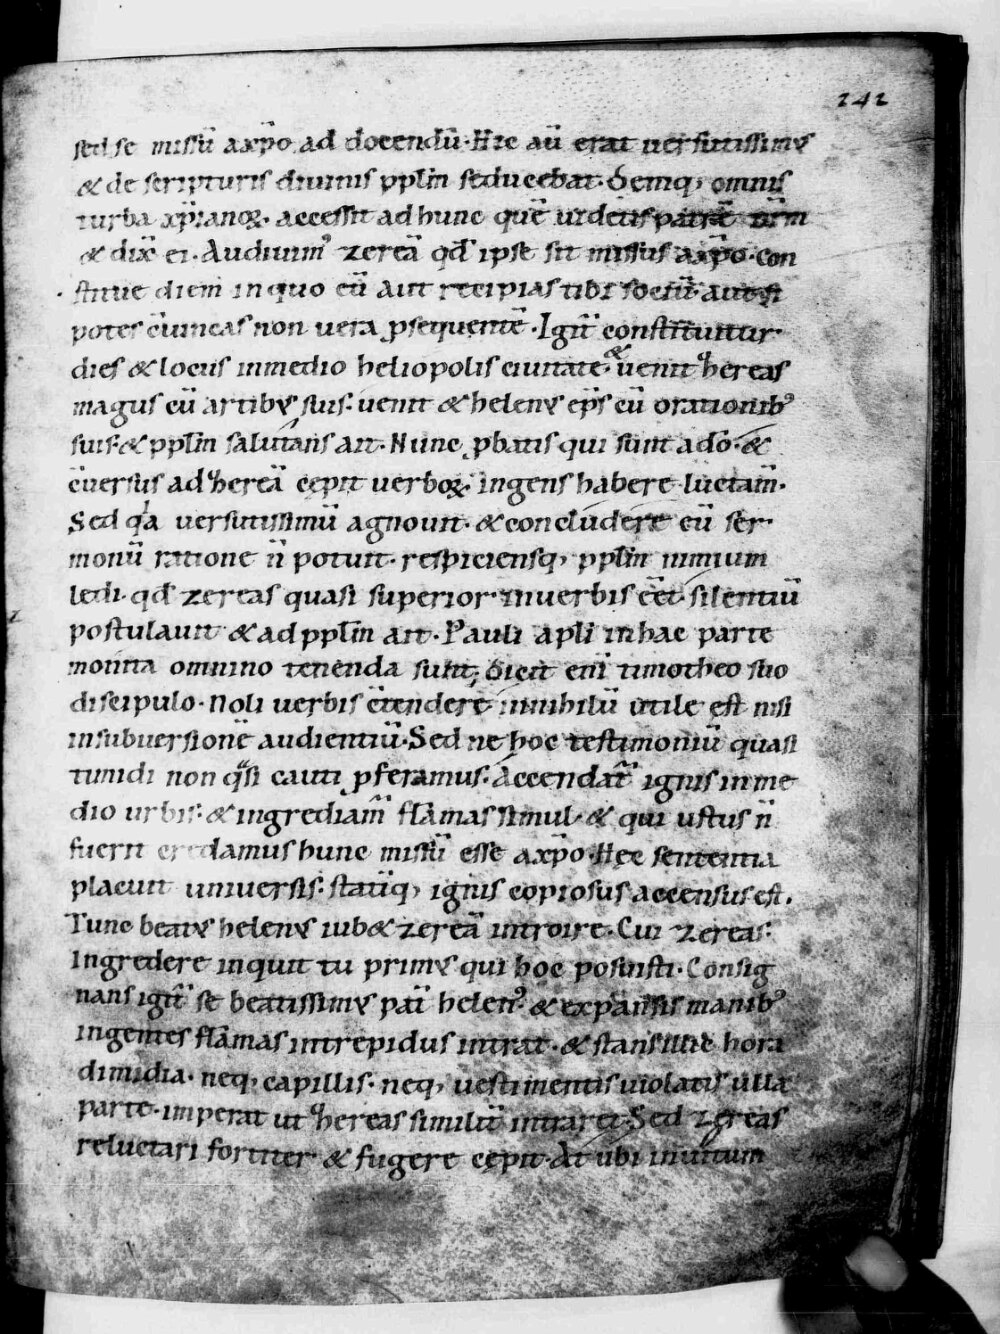 242
sed se missū axp̄o ad docendū. Hic aū erat uersutissimꝰ
& de scripturis diuinis pplm̄ seducebat. Deniq; omnis
turba xp̄ianoꝝ. accessit ad hunc quē uidetis patrē nr̄m
& dix̄ ei. Audiuimꝰ zereā qd̄ ipse sit missus axp̄o. Con
stitue diem in quo eū aut recipias tibi sociū. aut si
potes c̄uincas non uera ꝓsequentē. Igit̄ constituitur
dies & locus inmedio heliopolis ciuitatē. & uenit hereas
magus cū artibꝰ suis. uenit & helenꝰ ep̄s cū orationibꝰ
suis. & pplm̄ salutans ait. Nunc ꝓbatis qui sunt ad̄o. &
c̄uersus ad hereā cepit uerboꝝ ingens habere luctam̄.
Sed qa uersutissimū agnouit. & concludere eū ser
monū ratione n̄ potuit. respiciensq; pplm̄ nimium
ledi. qd̄ zereas quasi superior inuerbis eēt. silentiū
postulauit & ad pplm̄ ait. Pauli apl̄i in hac parte
monita omnino tenenda sunt; Dicit enī timotheo suo
discipulo. Noli uerbis c̄tendere innihilū utile est nisi
insubuersionē audientiū. Sed ne hoc testimoniū quasi
timidi non qsi cauti ꝓferamus. Accendat̄ ignis in me
dio urbis. & ingrediam̄ flāmas simul. & qui ustus n̄
fuerit credamus hunc missū esse axp̄o. Hec sententia
placuit uniuersis. statī q; ignis copiosus accensus est.
Tunc beatꝰ helenꝰ iub& zereā introire. Cui zereas.
Ingredere inquit tu primꝰ qui hoc posuisti. Consig
nans igit̄ se beatissimꝰ pat̄ helenꝰ. & expansis manibꝰ
ingentes flāmas intrepidus intrat. & stans illic hora
dimidia. neq; capillis. neq; uestimentis uiolatis ulla
parte. imperat ut hereas similit̄ intraret. Sed zereas
reluctari fortiter & fugere cepit. At ubi inuitum